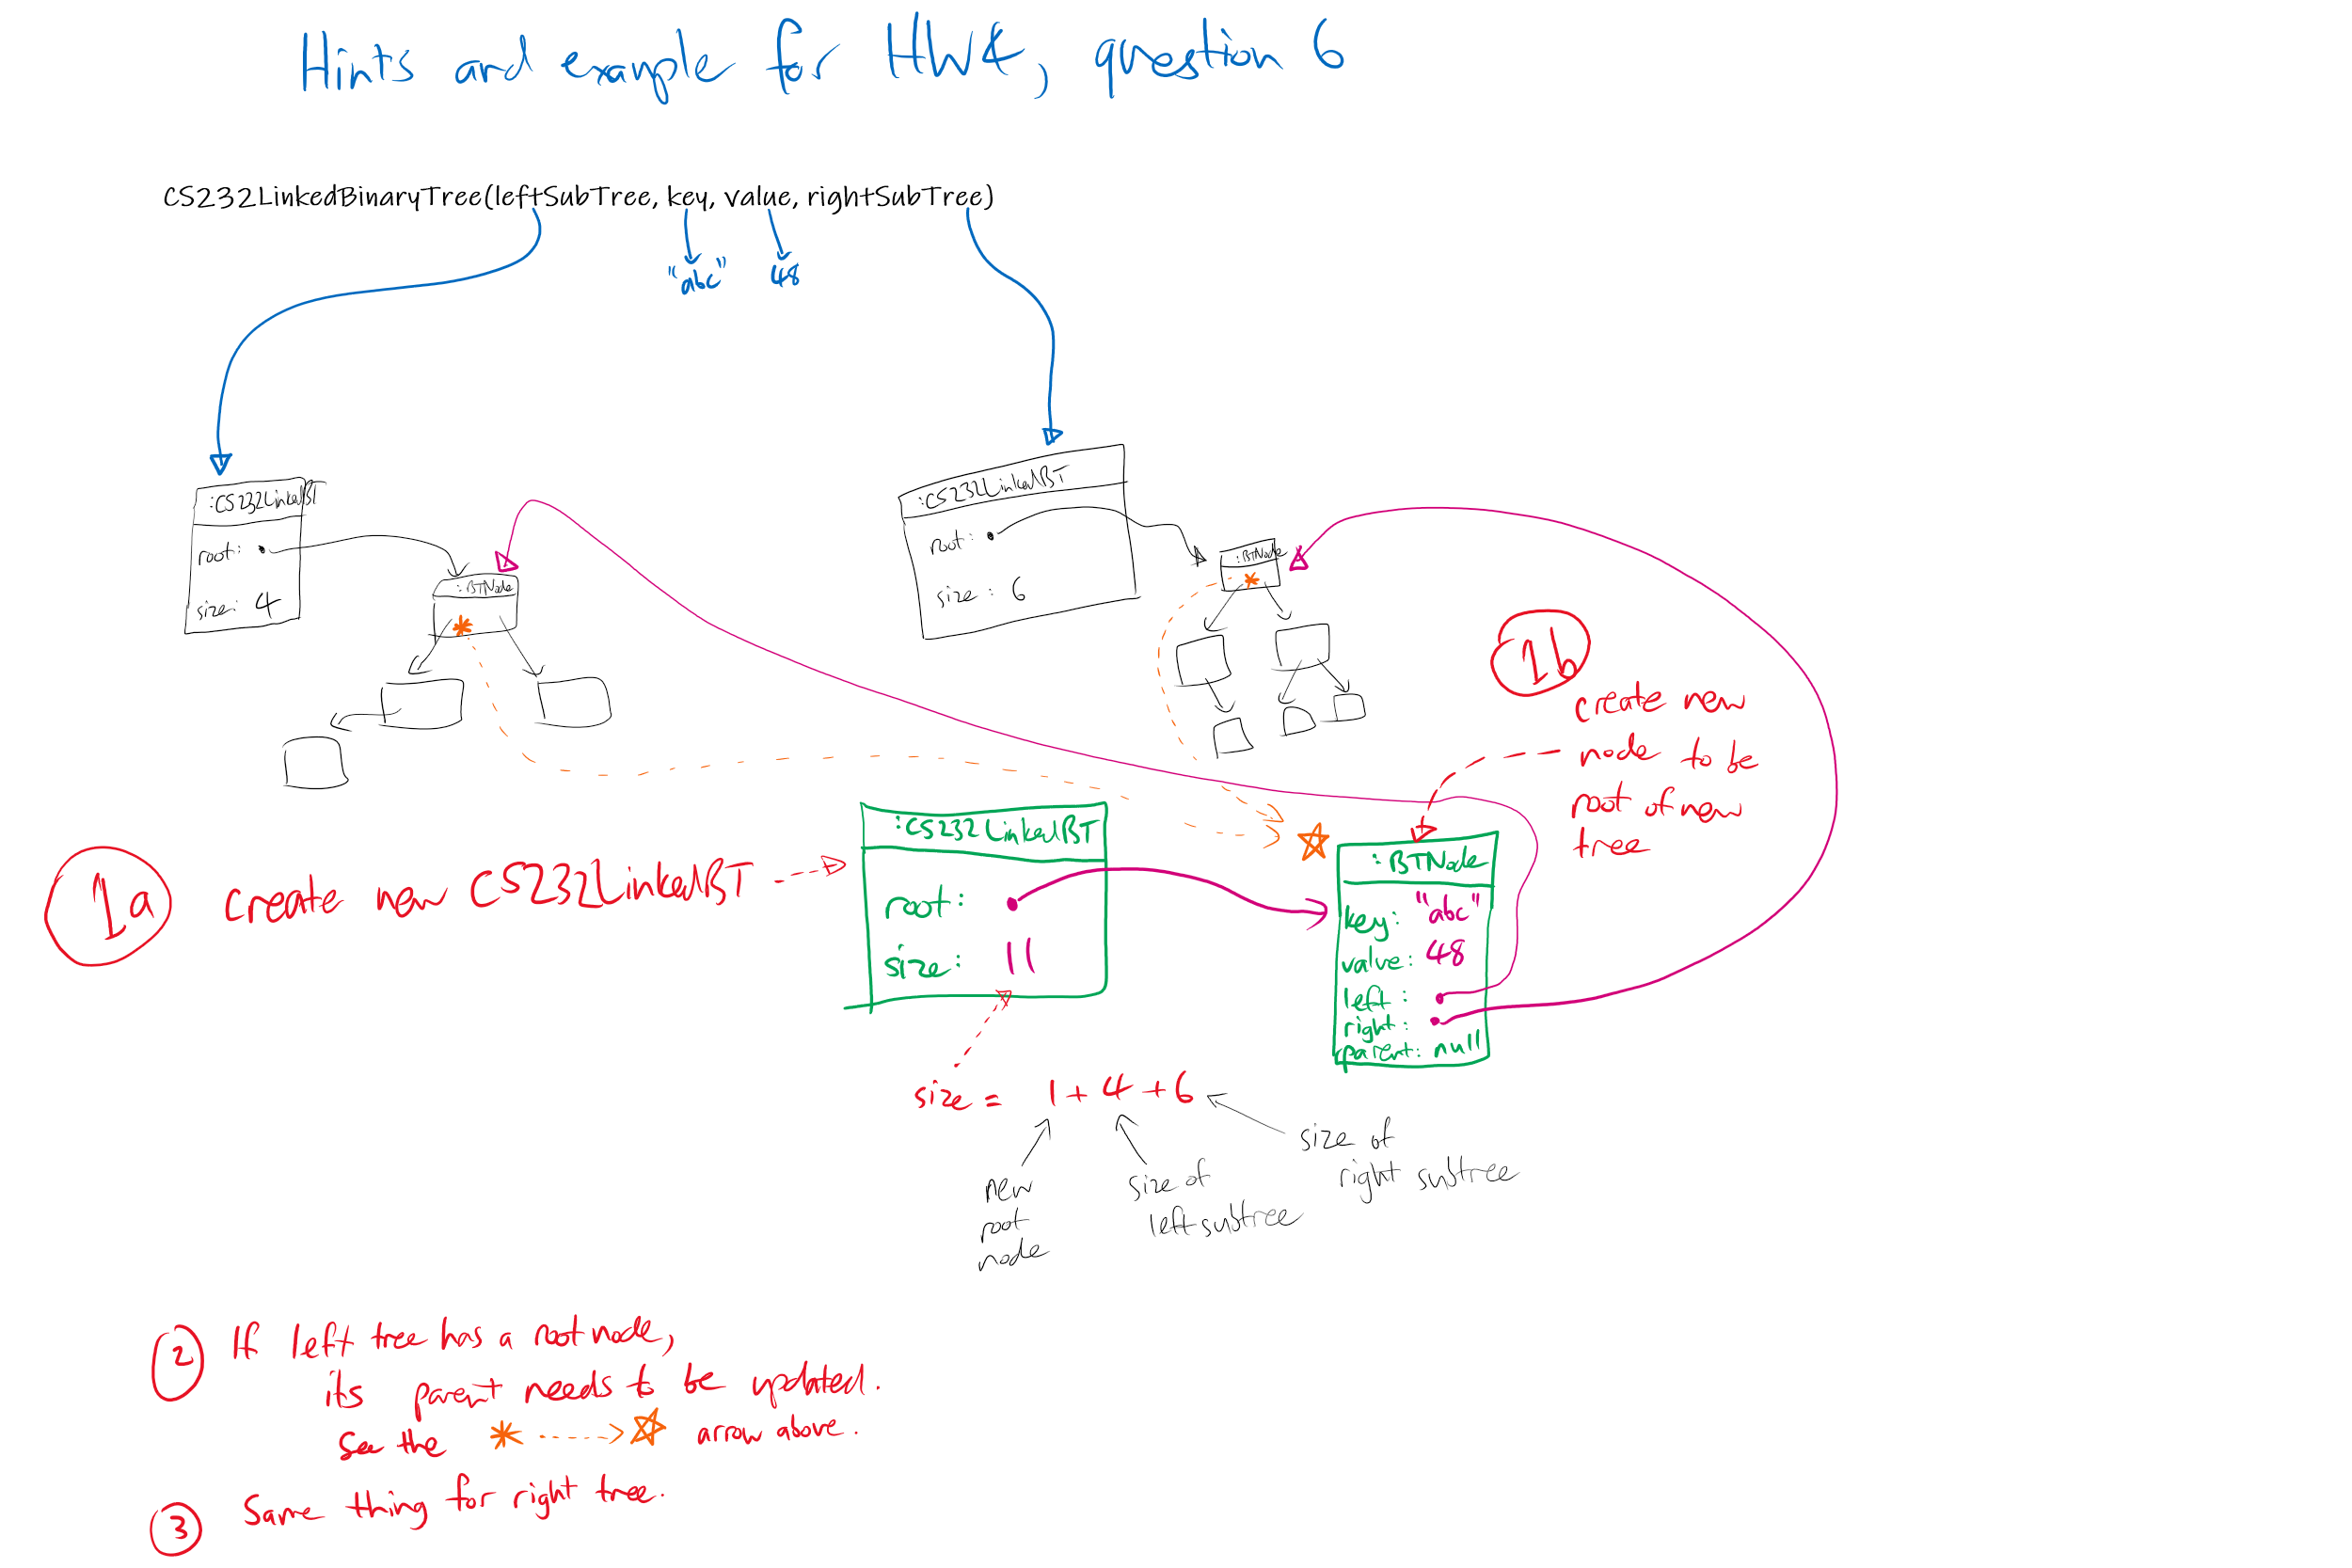 Hints and example for HW4, question 6
CS232LinkedBinaryTree(leftSubTree, key, value, rightSubTree)
"abc" 48
:CS232LinkedBT
root:
size: 4
:BTNode
:CS232LinkedBT
root:
size: 6
:BTNode
1b
create new
node to be
root of new
tree
1a create new CS232LinkedBT
:CS232LinkedBT
root:
size: 11
:BTNode
key: "abc"
value: 48
left:
right:
parent: null
size = 1+4+6
new
root
node
size of
left subtree
size of
right subtree
2 If left tree has a root node,
its parent needs to be updated.
See the * ----> ☆ arrow above.
3 Same thing for right tree.